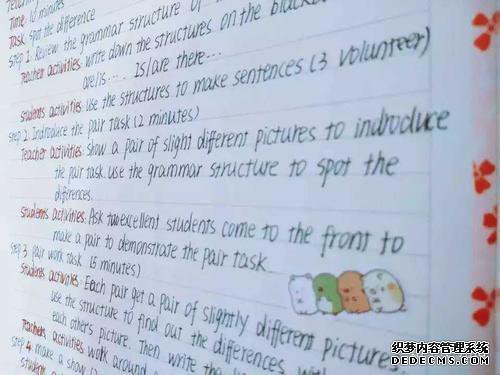 Time: 10 minutes
Task: spot the difference
step 1. Review the grammar structure of
Teacher activities: write down the structures on the blackbo
are/is... . Is/are there...
Students activities: Use the structures to make sentences (3 volunteer)
step 2. Indroduce the pair task (2 minutes)
Teacher activities: show a pair of slight different pictures to indroduce
the pair task. Use the grammar structure to spot the
diferences.
Students activities: Ask two excellent students come to the front to
make a pair to demonstrate the pair task.
step 3 pair work task (6 minutes)
Students activities: Each pair get a pair of slightly different pictures.
use the structure to find out the differences
each others picture. Then write the
Teachers activities: work around
step 4 make a show
student
织梦内容管理系统
DEDECMS.COM